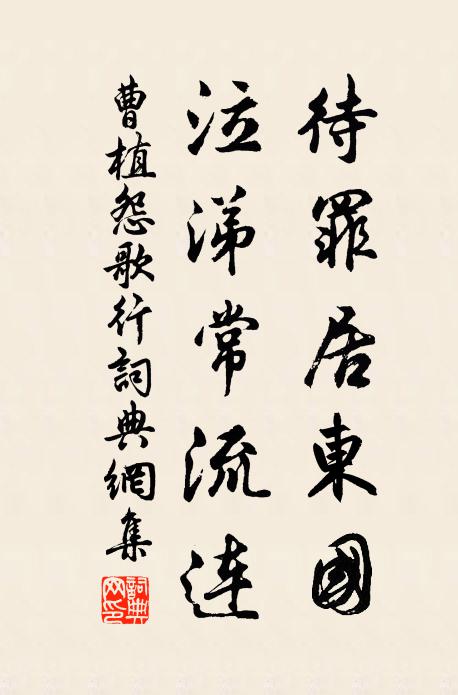 待罪居東國
泣涕常流連
曹植怨歌行詞典網集
詞典網印